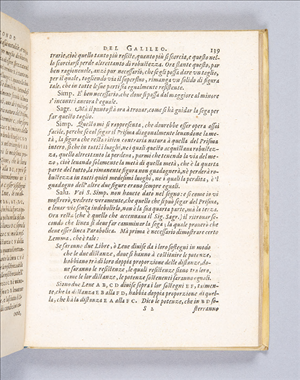 DEL GALILEO. 139
trario, ciò quello tanto più resiste, quanto più si scorcia, e questo nel-
lo scorciarsi perde altrettanto di robustezza. Ora stante questo, par
ben ragionevole, anzi pur necessario, che si gli possa dare un taglio,
per il quale, togliendo via il superfluo, rimanga un solido di figura
tale, che in tutte le sue parti sia egualmente resistente.
Simp. E' ben necessario, che dove si passa dal maggiore al minore
s'incontri ancora l'eguale.
Sagr. Mà il punto stà ora à trovar, come si hà guidar la sega per
far questo taglio.
Simp. Questo mi si rappresenta, che dovrebbe esser opera assai
facile, perche se col segar il Prisma diagonalmente levandone la me-
tà, la figura che resta ritien contraria natura à quella del Prisma
intero, si che in tutti i luoghi, ne i quali questo acquistava robustez-
za, quello altrettanto la perdeva, parmi che tenendo la via del me-
zo, cioè levando solamente la metà di quella metà, che è la quarta
parte del tutto, la rimanente figura non guadagnerà, nè perderà ro-
bustezza in tutti quei medesimi luoghi, ne i quali la perdita, e'l
guadagno dell'altre due figure erano sempre eguali.
Salv. Voi S. Simp. non havete dato nel segno; e sì come io vi
mostrerò, vedrete veramente, che quello che si può segar del Prisma,
e levar via senza indebolirlo, non è la sua quarta parte, mà la terza.
Ora resta (che è quello che accennava il Sig. Sagr.) il ritrovar se-
condo che linea si deve far camminar la sega; la quale proverò che
deve esser linea Parabolica. Mà prima è necessario dimostrare certo
Lemma, che è tale:
Se saranno due Libre, ò Leve divise da i loro sostegni in modo
che le due distanze, dove si hanno à costituire le potenze,
habbiano trà di loro doppia proporzione delle distanze, do-
ve saranno le resistenze, le quali resistenze siano trà loro,
come le lor distanze, le potenze sostenenti saranno eguali.
Siano due Leve A B, C D divise sopra i lor sostegni E F, talmen-
te, che la distanza E B alla F D, habbia doppia proporzione di quel-
la, che hà la distanza E A alla F C. Dico le potenze, che in B D so-
S 2 sterranno